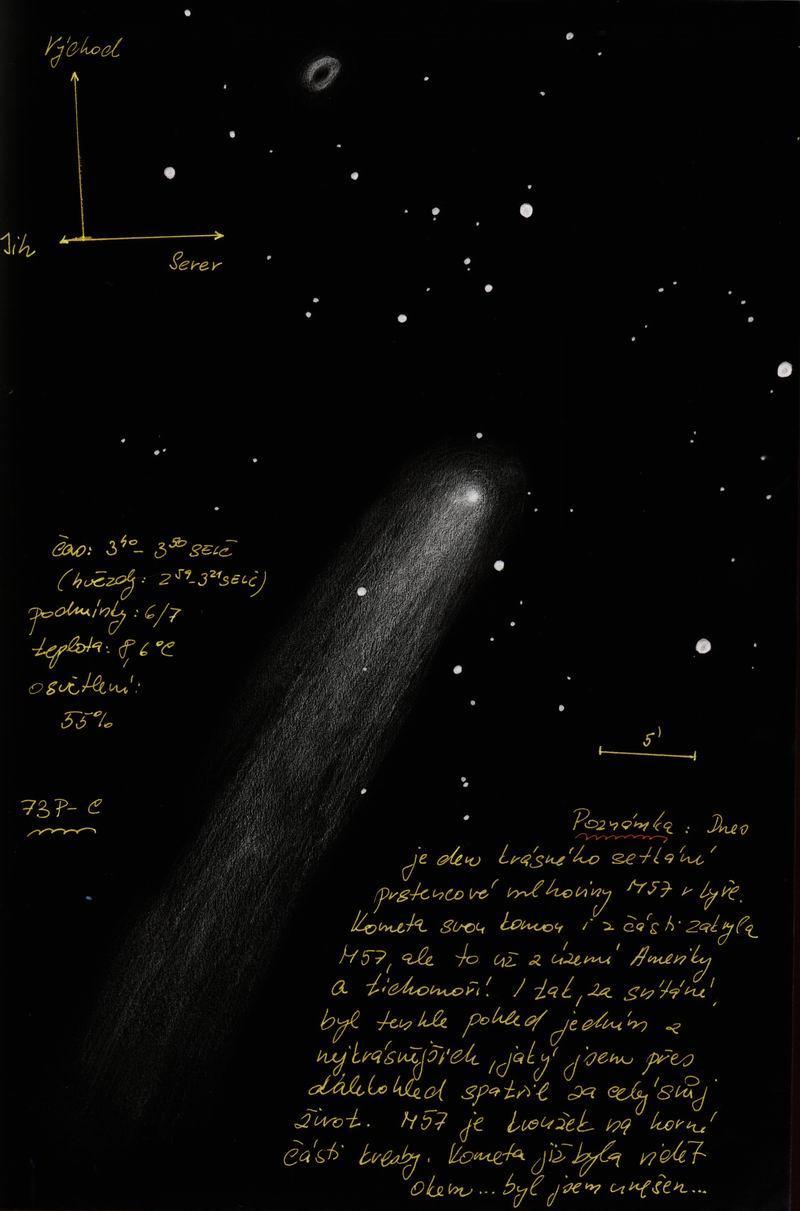 Východ
Jih
Sever
čas: 3⁴⁰ - 3⁵⁰ SELČ
(hvězdy: 2⁵⁹-3²¹SELČ)
podmínky: 6/7
teplota: 8,6°C
osvětlení:
55%
5'
73P-C
Poznámka: Dnes
je den krásného setkání
prstencové mlhoviny M57 v Lyře.
Kometa svou komou i z části zakryla
M57, ale to už z území Ameriky
a tichomoří! I tak, za svítání,
byl tenhle pohled jedním z
nejkrásnějších, jaký jsem přes
dalekohled spatřil za celý svůj
život. M57 je kroužek na horní
části kresby. Kometa již byla vidět
okem... byl jsem unešen...